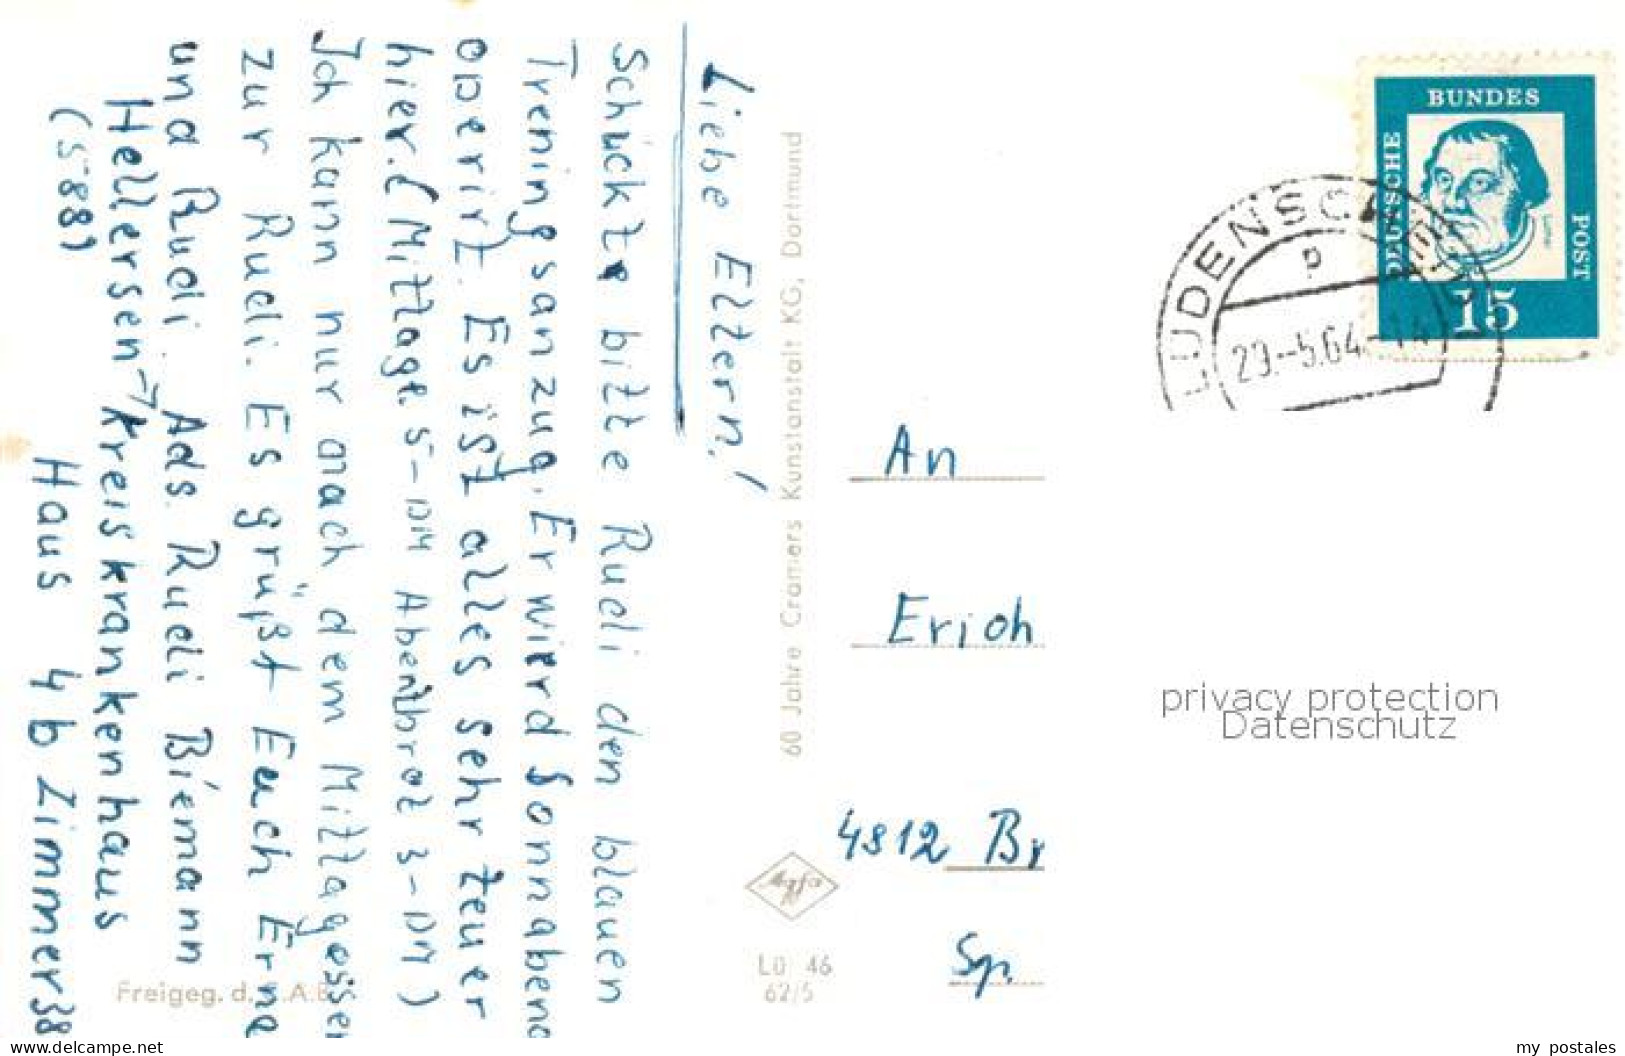 Liebe Eltern!
Schückte bitte Rudi den blauen
Treningsanzug. Er wierd Sonnabend
operirt. Es ist alles sehr teuer
hier. (Mittage 5-DM Abentbrot 3-DM)
Ich kann nur nach dem Mittagessen
zur Rudi. Es grüßt Euch Erna
und Rudi. Ads. Rudi Biemann
Hellersen Kreiskrankenhaus
(588)
Haus 4b Zimmer 38
Freigeg. d.
60 Jahre Cramers Kunstanstalt KG, Dortmund
Agfa
Lü 46
62/5
BUNDES
DEUTSCHE
POST
15
LÜDENSCHEID
p
29.-5.64-14
An
Erich
4812 Br
Sp.
privacy protection
Datenschutz
www.delcampe.net
my postales